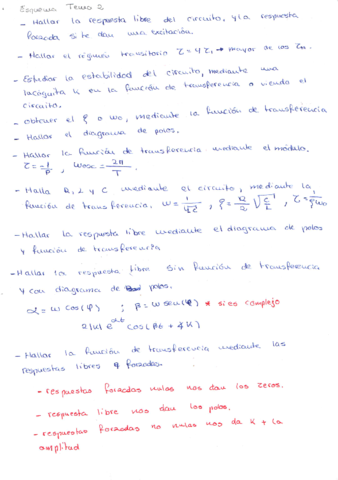 Esquema Tema 2
- Hallar la respuesta libre del circuito, y la respuesta
forzada si te dan una excitación.
- Hallar el régimen transitorio τ = 4τi → mayor de los τn.
- Estudiar la estabilidad del circuito, mediante una
incógnita K en la función de transferencia o viendo el
circuito.
- obtener el ρ o wo, mediante la función de transferencia
- Hallar el diagrama de polos.
- Hallar la función de transferencia mediante el módulo.
τ = -1/P, Wosc = 2π/T
- Halla R, L y C mediante el circuito, mediante la
función de transferencia. W = 1/√LC, ρ = R/2 √C/L, τ = 1/ρWo
- Hallar la respuesta libre mediante el diagrama de polos
y función de transferencia
- Hallar la respuesta libre sin función de transferencia
y con diagrama de polos.
α = w cos(φ) ; β = w sen(φ) * si es complejo
2|K| e^αt cos(βt + ∡K)
- Hallar la función de transferencia mediante las
respuestas libres y forzadas.
- respuestas forzadas nulas nos dan los zeros.
- respuesta libre nos dan los polos.
- respuestas forzadas no nulas nos da K + la
amplitud